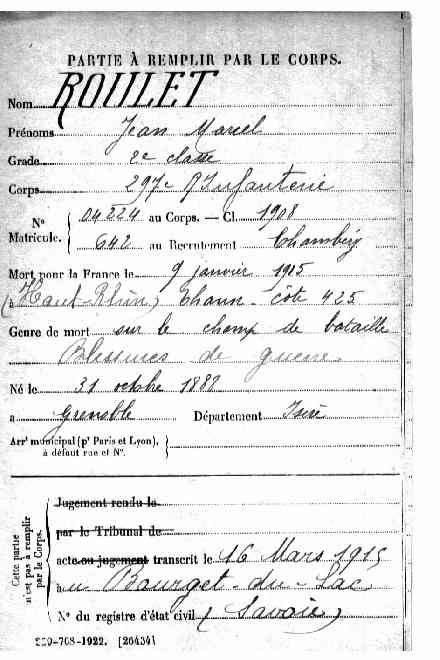 PARTIE À REMPLIR PAR LE CORPS.
Nom ROULET
Prénoms Jean Marcel
Grade 2e classe
Corps 297e R Infanterie
N° Matricule. { 04224 au Corps. — Cl. 1908
642 au Recrutement Chambéry
Mort pour la France le 9 janvier 1915
(Haut-Rhin) Thann - côte 425
Genre de mort sur le champ de bataille
Blessures de guerre
Né le 31 octobre 1888
a Grenoble Département Isère
Arrt municipal (pr Paris et Lyon), à défaut rue et N°.
Cette partie n'est pas à remplir par le Corps.
Jugement rendu le
par le Tribunal de
acte ou jugement transcrit le 16 Mars 1915
au Bourget-du-Lac
N° du registre d'état civil (Savoie)
-708-1922. [26434]